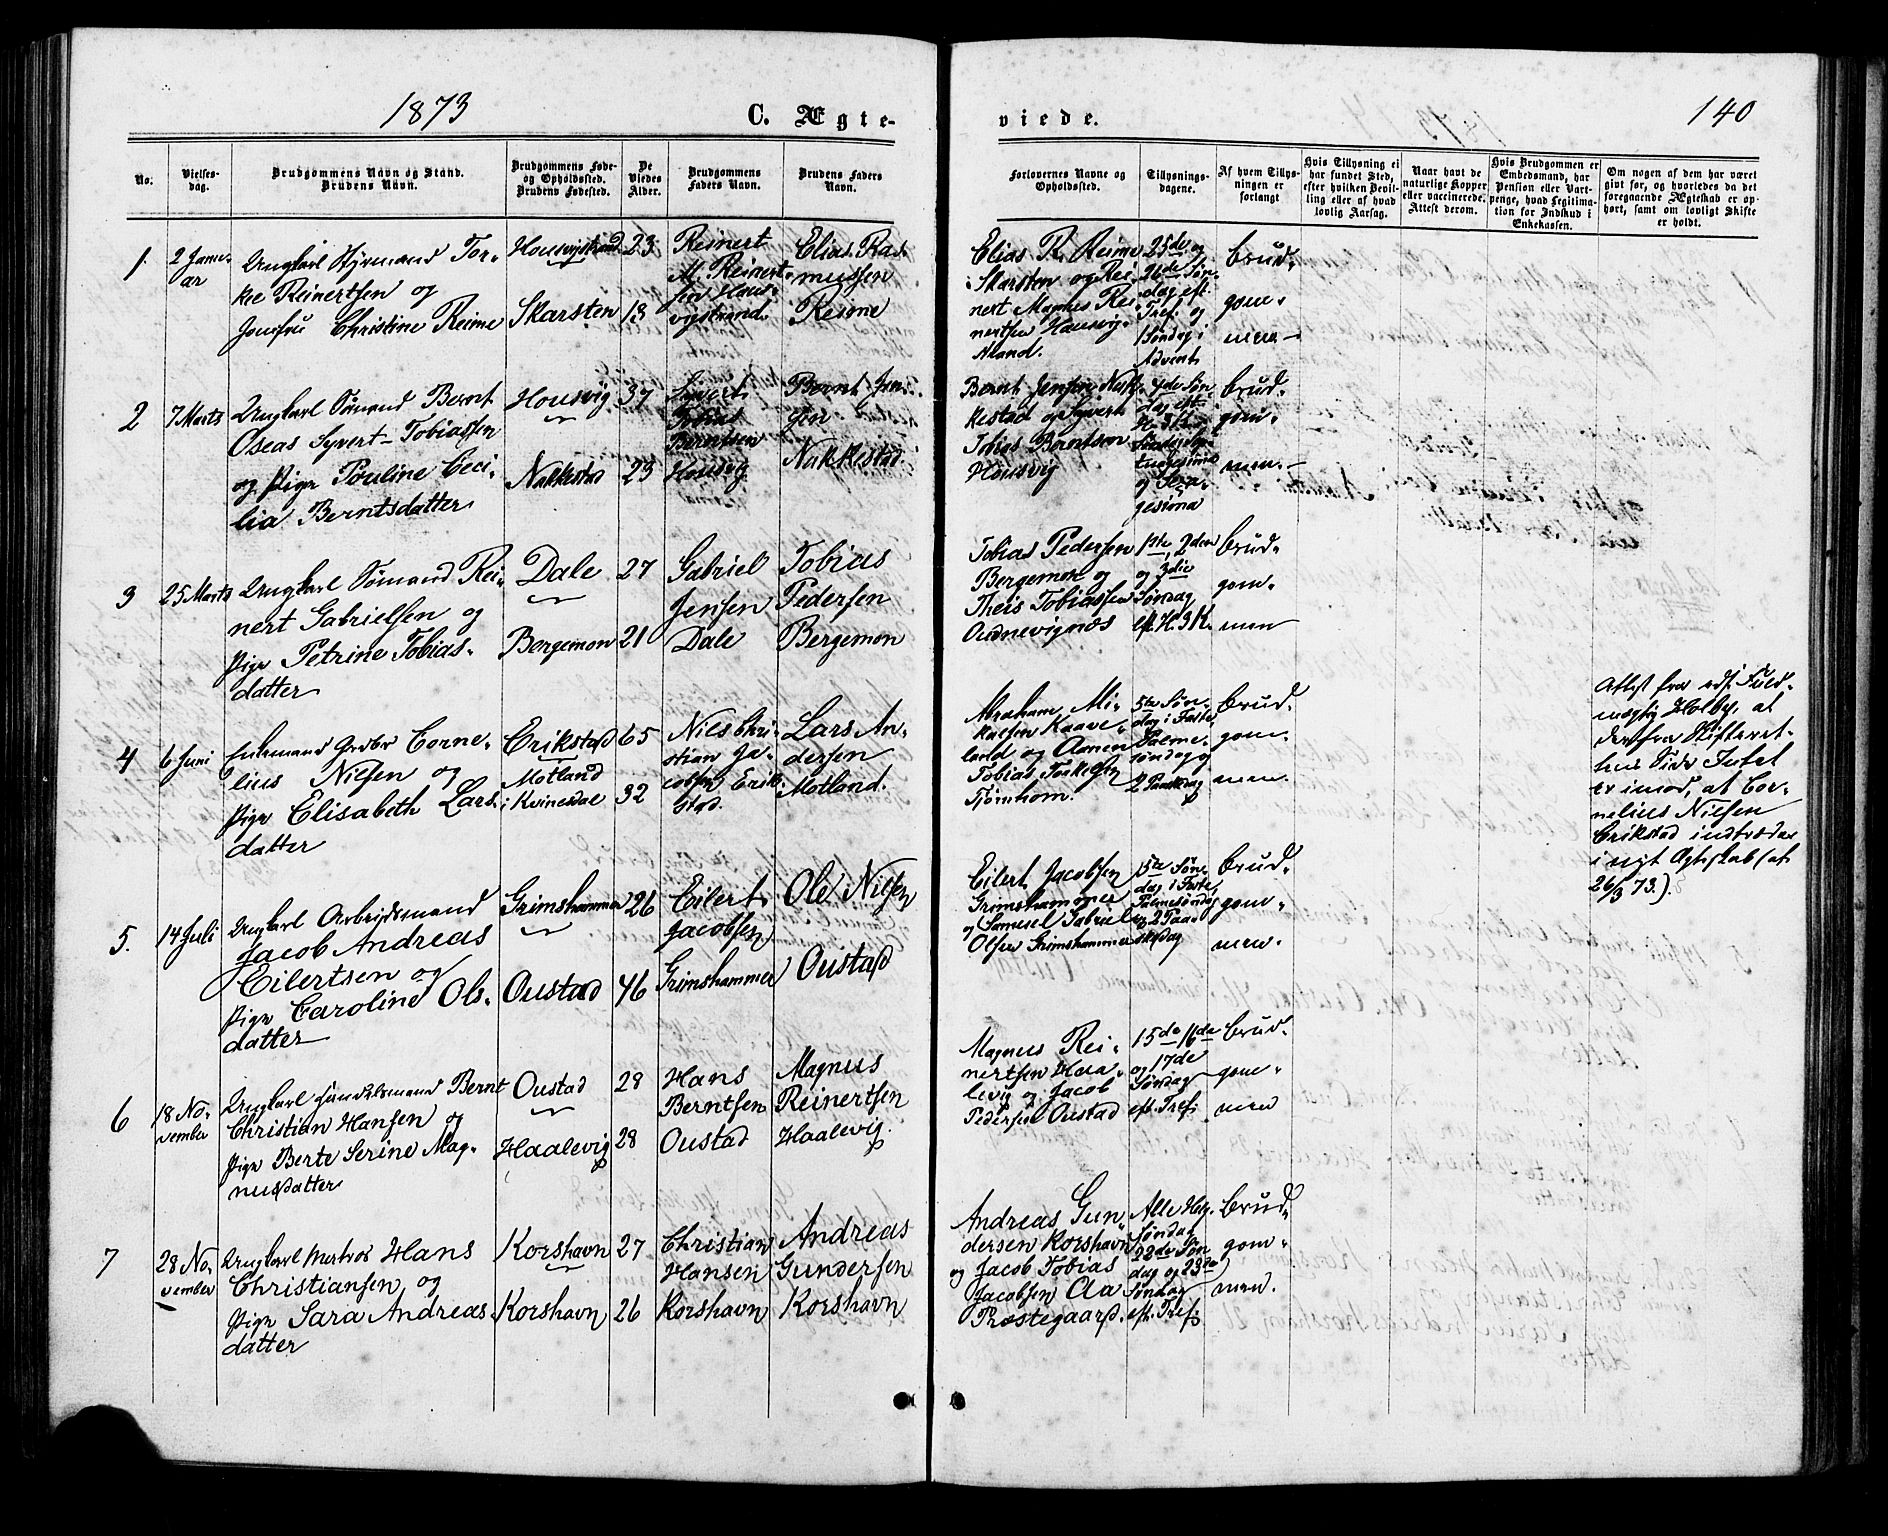 1873
C. Ægte-
viede.
140
No.
Vielses-
dag.
Brudgommens Navn og Stand.
Brudens Navn.
Brudgommens Føde-
og Opholdssted.
Brudens Fødested.
De
Viedes
Alder.
Brudgommens
Faders Navn.
Brudens Faders
Navn.
Forlovernes Navne og
Opholdssted.
Tillysnings-
dagene.
Af hvem Tillys-
ningen er
forlangt
Hvis Tillysning ei
har fundet Sted,
efter hvilken Bevil-
ling eller af hvad
lovlig Aarsag.
Naar havt de
naturlige Kopper
eller vaccinerede.
Attest derom.
Hvis Brudgommen er
Embedsmand, har
Pension eller Vart-
penge, hvad Legitima-
tion for Indskud i
Enkekassen.
Om nogen af dem har været
gift før, og hvorledes da det
foregaaende Ægteskab er op-
hørt, samt om lovligt Skifte
er holdt.
1.
2 Janu-
ar
Ungkarl Styrmand Tor-
kel Reinertsen og
Jomfru Christine Reime
Housvigstrand
Skarsten
23
18
Reinert
M. Reinert-
sen Hous-
vigstrand
Elias Ras-
mussen
Reime
Elias R. Reime
Skarsten og Rei-
nert Magnus Rei-
nertsen Housvig-
strand.
25de og
26de Søn-
dag eft.
Tref. og
1 Søndag i
Advent
brud-
gom-
men
2
7 Marts
Ungkarl Sømand Bernt
Oseas Syvert-Tobiassen
og Pige Pouline Ceci-
lia Berntsdatter
Housvig
Nakkestad
37
23
Syvert
Tobias
Berntsen
Housvig
Bernt Jen-
sen
Nakkestad
Bernt Jensen Nak-
kestad og Syvert
Tobias Berntsen
Housvig
4de Søn-
dag eft.
H. 3 K.
Søndag Sep-
tuagesima
og Sexa-
gesima
brud-
gom-
men.
3
25 Marts
Ungkarl Sømand Rei-
nert Gabrielsen og
Pige Petrine Tobias-
datter
Dale
Bergemon
27
21
Gabriel
Jensen
Dale
Tobias
Pedersen
Bergemon
Tobias Pedersen
Bergemon og
Theis Tobiassen
Oudnevignæs
1ste, 2den
og 3die
Søndag
eft. H. 3 K.
brud-
gom-
men
4
6 Juni
Enkemand Grdbr Corne-
lius Nilsen og
Pige Elisabeth Lars-
datter
Erikstad
Motland
i Kvinesdal
65
32
Nils Chri-
stian Ja-
cobsen Erik-
stad.
Lars An-
dersen
Motland.
Abraham Mi-
kalsen Kaave-
land og Aanen
Tobias Torkelsen
Tjørnhom.
5te Søn-
dag i Faste,
Palme-
søndag og
2 Paaskedag
brud-
gom-
men.
Attest fra edsf. Fuld-
mægtig Holby, at
derfra Skifteret-
tens Side Intet
er imod, at Cor-
nelius Nielsen
Erikstad indtræder
i nyt Ægteskab (at.
26/3 73.).
5.
14 Juli
Ungkarl Arbeidsmand
Jacob Andreas
Eilertsen og
Pige Caroline Ols-
datter
Grimshammer
Oustad
26
46
Eilert
Jacobsen
Grimshammer
Ole Nilsen
Oustad
Eilert Jacobsen
Grimshammer
og Samuel Gabriel
Olsen Grimshammer
5te Søn-
dag i Faste,
Palmesøndag
og 2 Paa-
skedag
brud-
gom-
men.
6
18 No-
vember
Ungkarl Handelsmand Bernt
Christian Hansen og
Pige Berte Serine Mag-
nusdatter
Oustad
Haalevig
28
28
Hans
Berntsen
Oustad
Magnus
Reinertsen
Haalevig.
Magnus Rei-
nertsen Haa-
levig og Jacob
Pedersen Oustad
15de 16de
og 17de
Søndag
eft. Tref.
brud-
gom-
men
7
28 No-
vember
Ungkarl Matros Hans
Christiansen og
Pige Sara Andreas-
datter
Korshavn
Korshavn
27
26
Christian
Hansen
Korshavn
Andreas
Gundersen
Korshavn
Andreas Gun-
dersen Korshavn
og Jacob Tobias
Jacobsen Aa
Præstegaard.
Alle Helg.
Søndag,
22de Søn-
dag og 23de
Søndag
eft. Tref.
brud-
gom-
men.